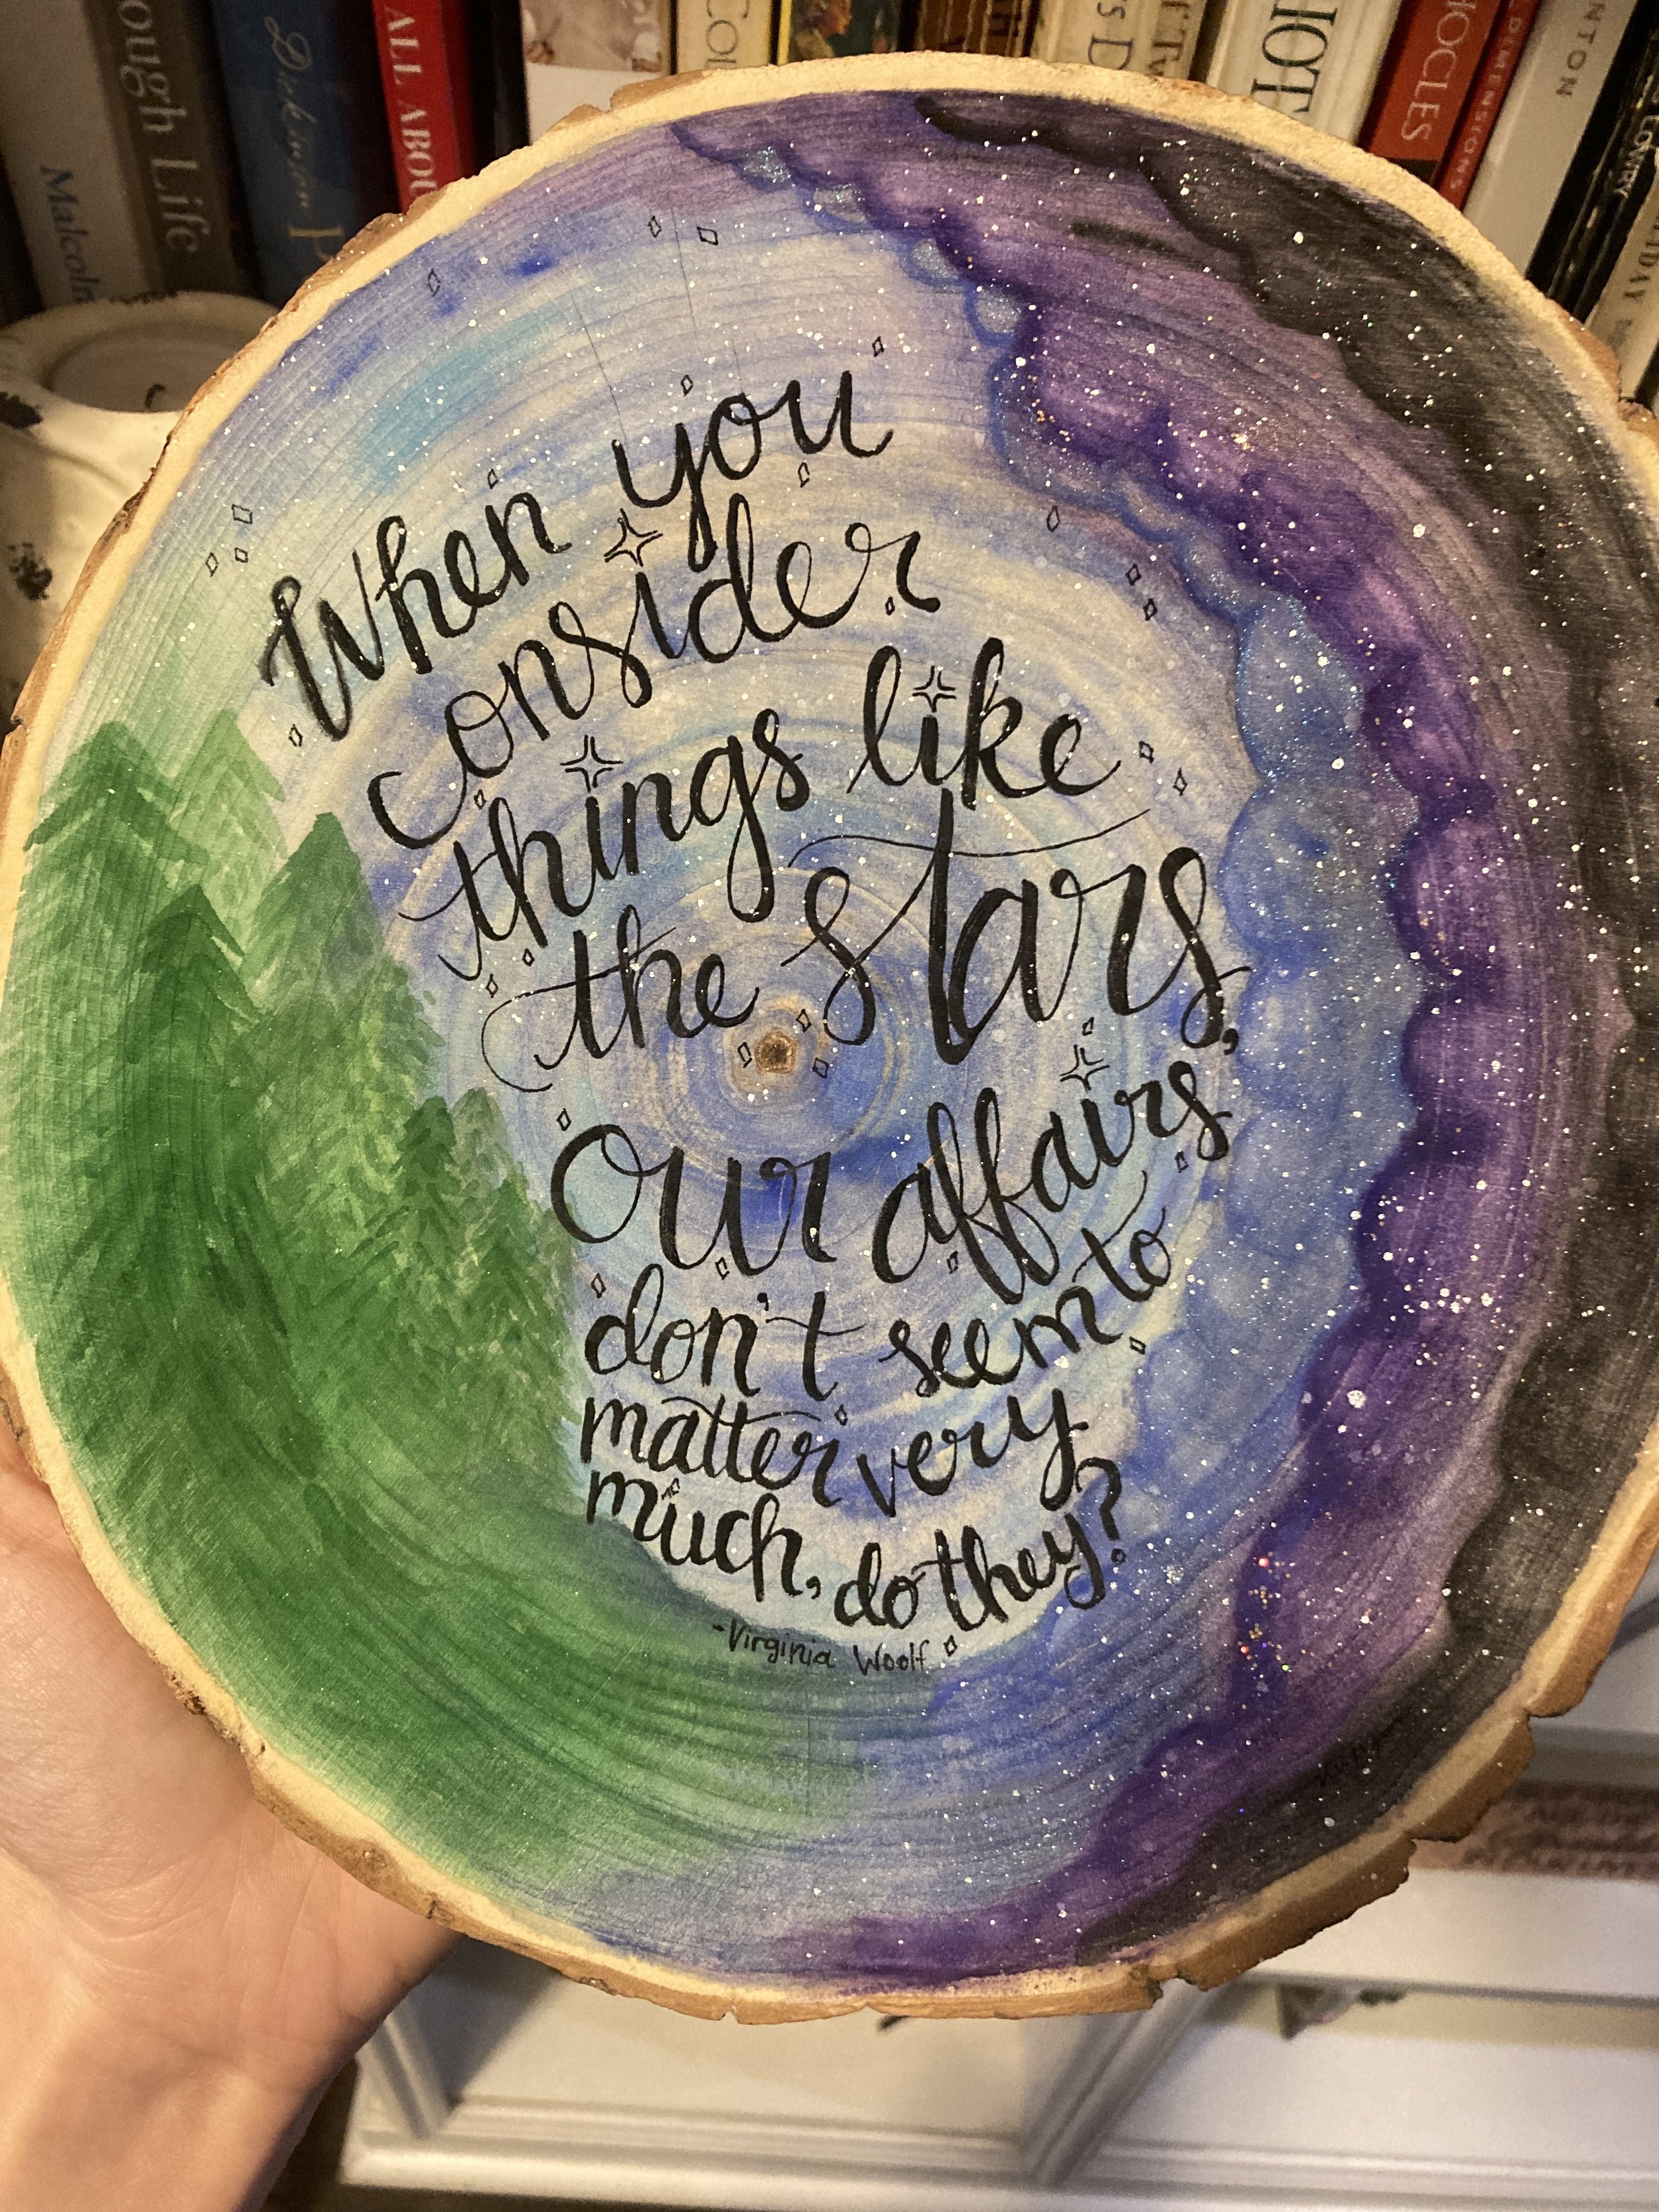 ough Life
Malcolm
Dickinson
ALL ABOU
COL
S D
HOT
OCLES
DIMENSIONS
NTON
When you
consider
things like
the stars,
our affairs,
don't seem to
matter very
much, do they?
-Virginia Woolf